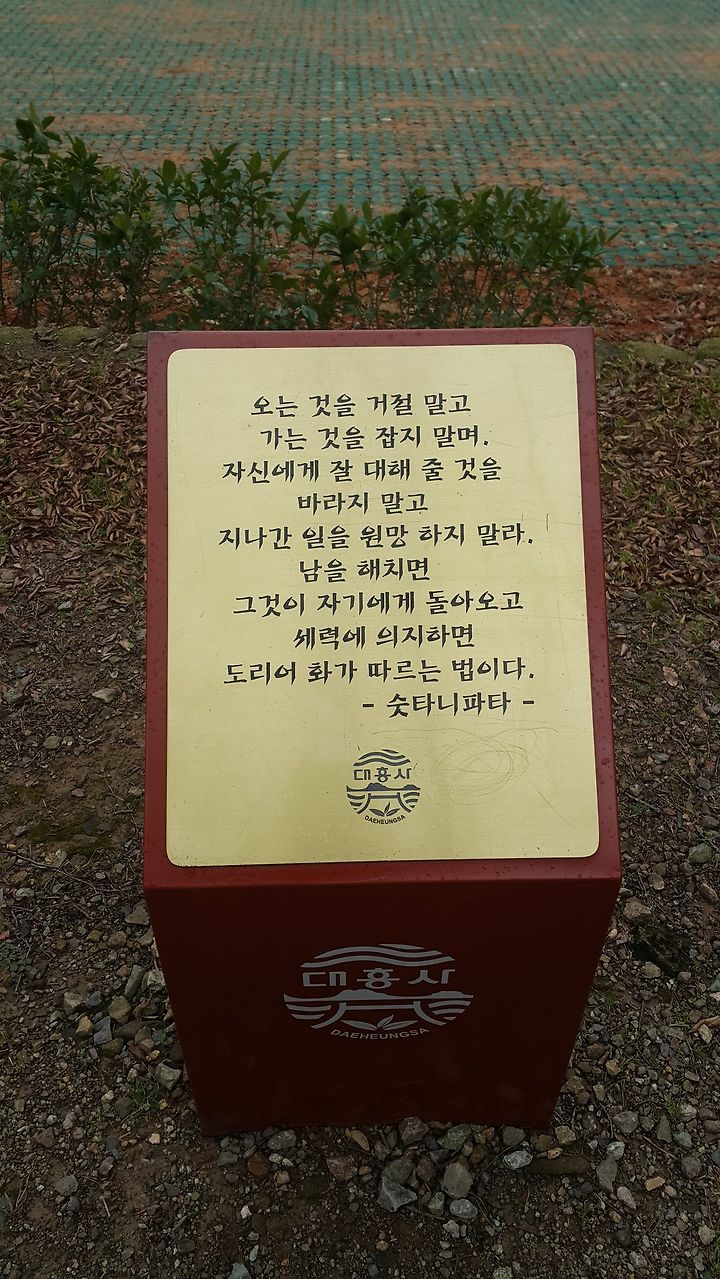 오는 것을 거절 말고
가는 것을 잡지 말며.
자신에게 잘 대해 줄 것을
바라지 말고
지나간 일을 원망 하지 말라.
남을 해치면
그것이 자기에게 돌아오고
세력에 의지하면
도리어 화가 따르는 법이다.
- 숫타니파타 -
대흥사
DAEHEUNGSA
대흥사
DAEHEUNGSA